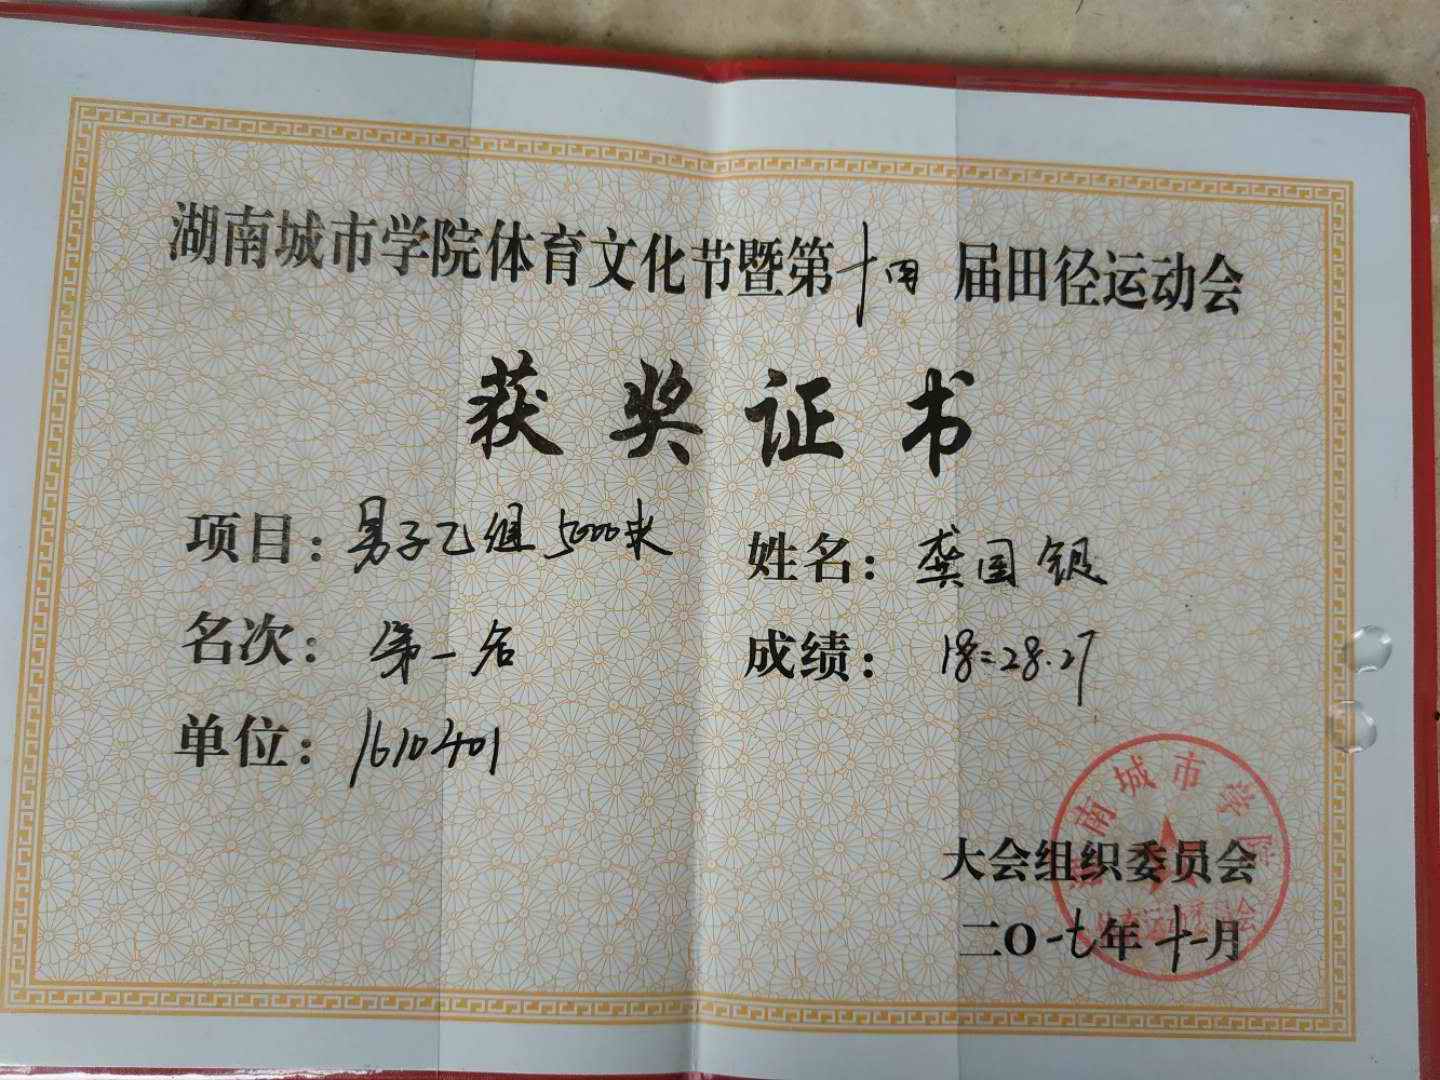 湖南城市学院体育文化节暨第十四届田径运动会
获奖证书
项目：男子乙组5000米
姓名：龚国银
名次：第一名
成绩：18:28.27
单位：1610401
大会组织委员会
二〇一七年十一月
湖南城市学院
体育运动委员会